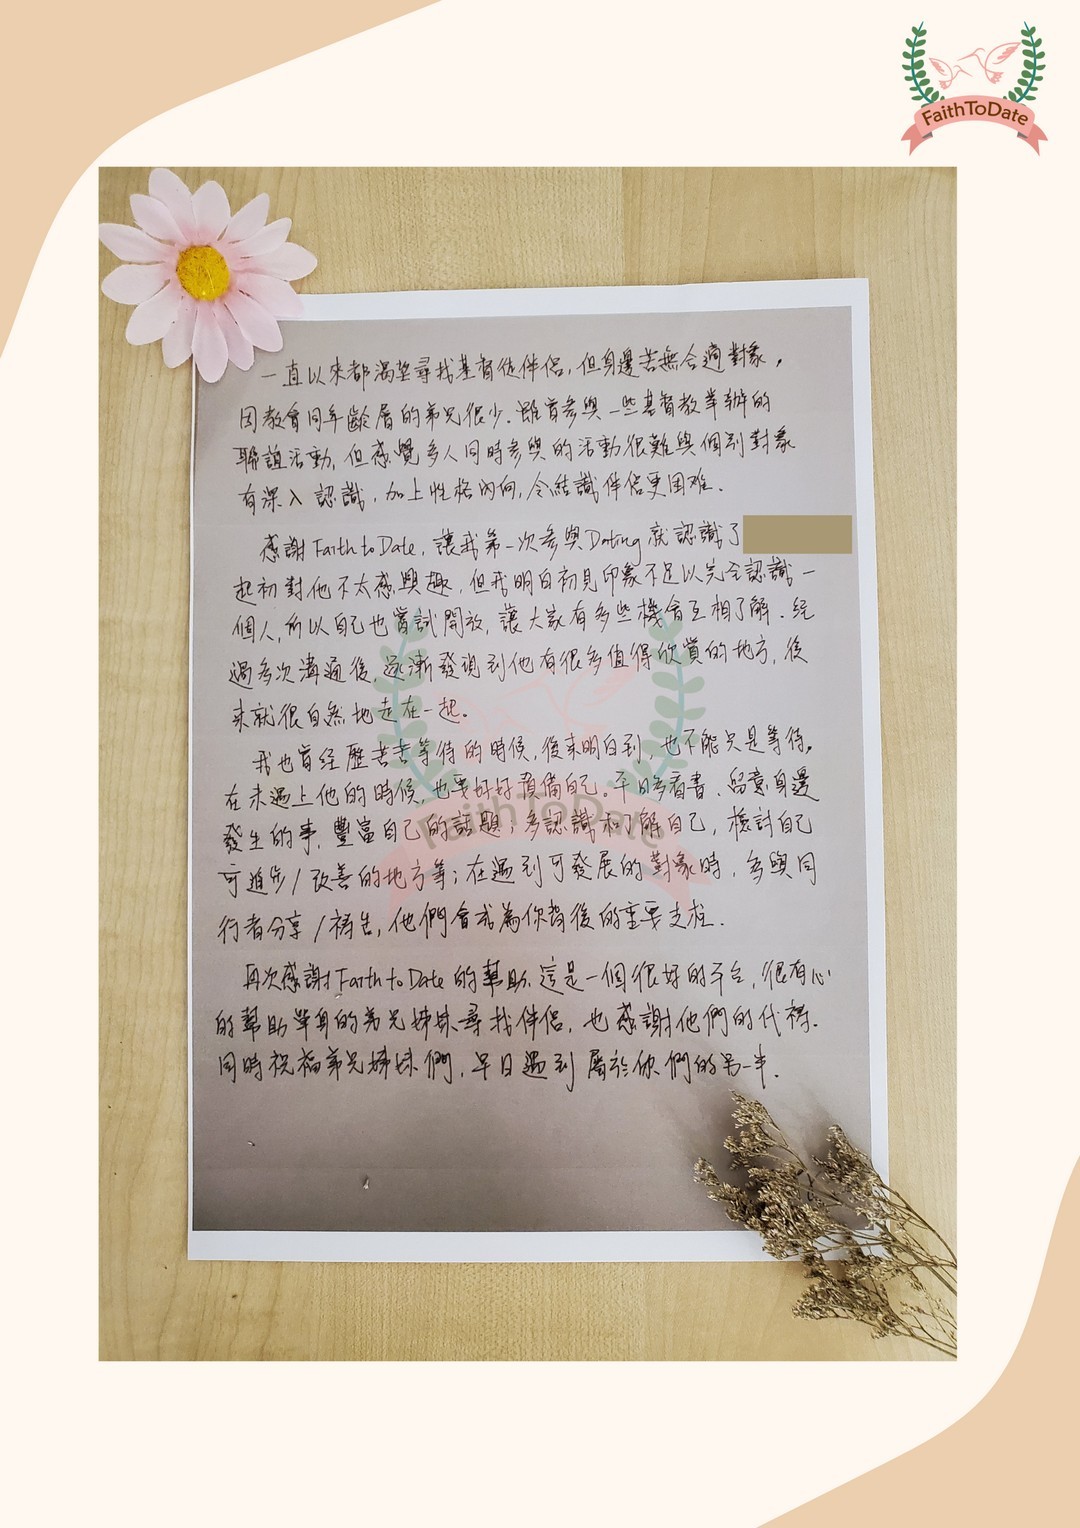 FaithToDate
一直以來都渴望尋找基督徒伴侶,但身邊苦無合適對象,
因教會同年齡層的弟兄很少.雖曾參與一些基督教舉辦的
聯誼活動,但感覺多人同時參與的活動很難與個別對象
有深入認識,加上性格內向,令結識伴侶更困难.
感謝Faith to Date,讓我第一次參與Dating就認識了
起初對他不太感興趣,但我明白初見印象不足以完全認識一
個人,所以自己也嘗試開放,讓大家有多些機會互相了解.經
過多次溝通後,逐漸發現到他有很多值得欣賞的地方,後
來就很自然地走在一起。
我也曾經歷苦苦等待的時候,後來明白到,也不能只是等待。
在未遇上他的時候,也要好好預備自己。平日多看書、留意身邊
發生的事,豐富自己的話題;多認識和了解自己,檢討自己
可進步/改善的地方等;在遇到可發展的對象時,多與同
行者分享/禱告,他們會成為你背後的重要支柱.
再次感謝Faith to Date的幫助,這是一個很好的平台,很有心
的幫助單身的弟兄姊妹尋找伴侶,也感謝他們的代禱.
同時祝福弟兄姊妹們,早日遇到屬於你們的另一半.
FaithToDate